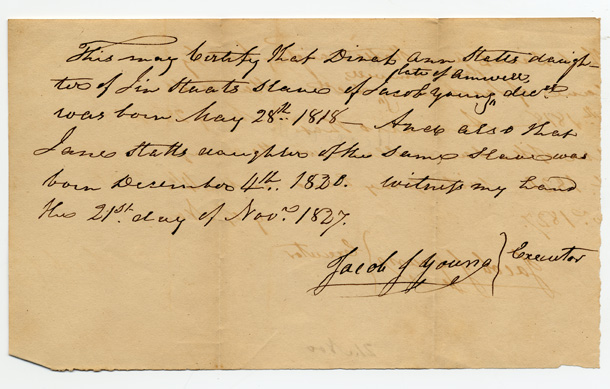 This may Certify that Dinah Ann Statts daugh-
late of Amwell
ter of Jin Staats Slave of Jacob Young decsd
was born May 28th. 1818 And also that
Jane Statts daughter of the same Slave was
born December 4th. 1820. witness my hand
this 21st. day of Novr. 1827.
Jacob J Young } Executor